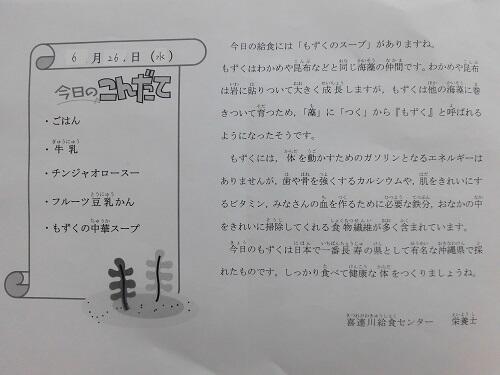 6月26日(水)
今日のこんだて
・ごはん
・牛乳
・チンジャオロースー
・フルーツ豆乳かん
・もずくの中華スープ
今日の給食には「もずくのスープ」がありますね。
もずくはわかめや昆布などと同じ海藻の仲間です。わかめや昆布
は岩に貼りついて大きく成長しますが、もずくは他の海藻に巻
きついて育つため、「藻」に「つく」から『もずく』と呼ばれる
ようになったそうです。
もずくには、体を動かすためのガソリンとなるエネルギーは
ありませんが、歯や骨を強くするカルシウムや、肌をきれいにす
るビタミン、みなさんの血を作るために必要な鉄分、おなかの中
をきれいに掃除してくれる食物繊維が多く含まれています。
今日のもずくは日本で一番長寿の県として有名な沖縄県で採
れたものです。しっかり食べて健康な体をつくりましょうね。
喜連川給食センター 栄養士